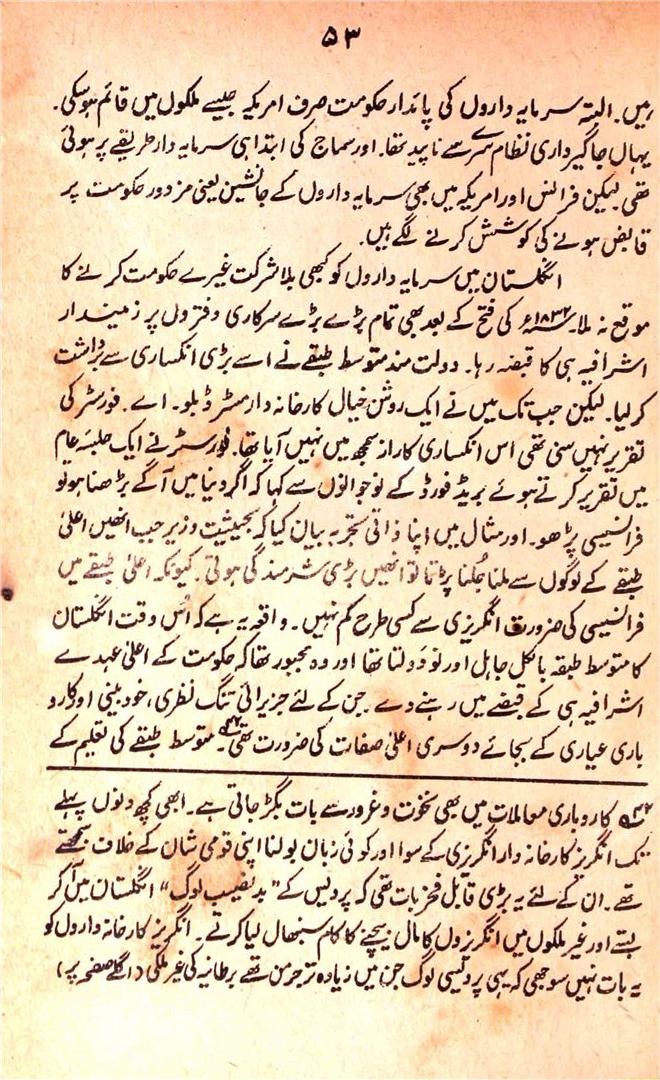 ۵۳
رہیں۔ البتہ سرمایہ داروں کی پائدار حکومت صرف امریکہ جیسے ملکوں میں قائم ہوسکی۔
یہاں جاگیرداری نظام سرے سے ناپید تھا۔ اور سماج کی ابتدا ہی سرمایہ دار طریقے پر ہوئی
تھی۔ لیکن فرانس اور امریکہ میں بھی سرمایہ داروں کے جانشین یعنی مزدور حکومت پر
قابض ہونے کی کوشش کرنے لگے ہیں۔
انگلستان میں سرمایہ داروں کو کبھی بلا شرکت غیرے حکومت کرنے کا
موقع نہ ملا۔ ۱۸۳۲ء کی فتح کے بعد بھی تمام بڑے بڑے سرکاری دفتروں پر زمیندار
اشرافیہ ہی کا قبضہ رہا۔ دولت مند متوسط طبقے نے اسے بڑی انکساری سے برداشت
کر لیا۔ لیکن جب تک میں نے ایک روشن خیال کارخانہ دار مسٹر ڈبلو۔ اے۔ فورسٹر کی
تقریر نہیں سنی تھی اس انکساری کا راز سمجھ میں نہیں آیا تھا۔ فورسٹر نے ایک جلسۂ عام
میں تقریر کرتے ہوئے بریڈ فورڈ کے نوجوانوں سے کہا کہ اگر دنیا میں آگے بڑھنا ہو تو
فرانسیسی پڑھو۔ اور مثال میں اپنا ذاتی تجربہ بیان کیا کہ بحیثیت وزیر جب انھیں اعلیٰ
طبقے کے لوگوں سے ملنا جُلنا پڑتا تو انھیں بڑی شرمندگی ہوتی۔ کیونکہ اعلیٰ طبقے میں
فرانسیسی کی ضرورت انگریزی سے کسی طرح کم نہیں۔ واقعہ یہ ہے کہ اُس وقت انگلستان
کا متوسط طبقہ بالکل جاہل اور نو دَولتا تھا اور وہ مجبور تھا کہ حکومت کے اعلیٰ عہدے
اشرافیہ ہی کے قبضے میں رہنے دے۔ جن کے لئے جزیرائی تنگ نظری، خود بینی اور کارو
باری عیاری کے بجائے دوسری اعلیٰ صفات کی ضرورت تھی۔ متوسط طبقے کی تعلیم کے
کاروباری معاملات میں بھی نخوت و غرور سے بات بگڑ جاتی ہے۔ ابھی کچھ دنوں پہلے
تک انگریز کارخانہ دار انگریزی کے سوا اور کوئی زبان بولنا اپنی قومی شان کے خلاف سمجھتے
تھے۔ ان کے لئے یہ بڑی قابل فخر بات تھی کہ پردیس کے "بدنصیب لوگ" انگلستان میں آ کر
بستے اور غیر ملکوں میں انگریزوں کا مال بیچنے کا کام سنبھال لیا کرتے۔ انگریز کارخانہ داروں کو
یہ بات نہیں سوجھی کہ یہی پردیسی لوگ جن میں زیادہ تر جرمن تھے برطانیہ کی غیر ملکی (اگلے صفحہ پر)